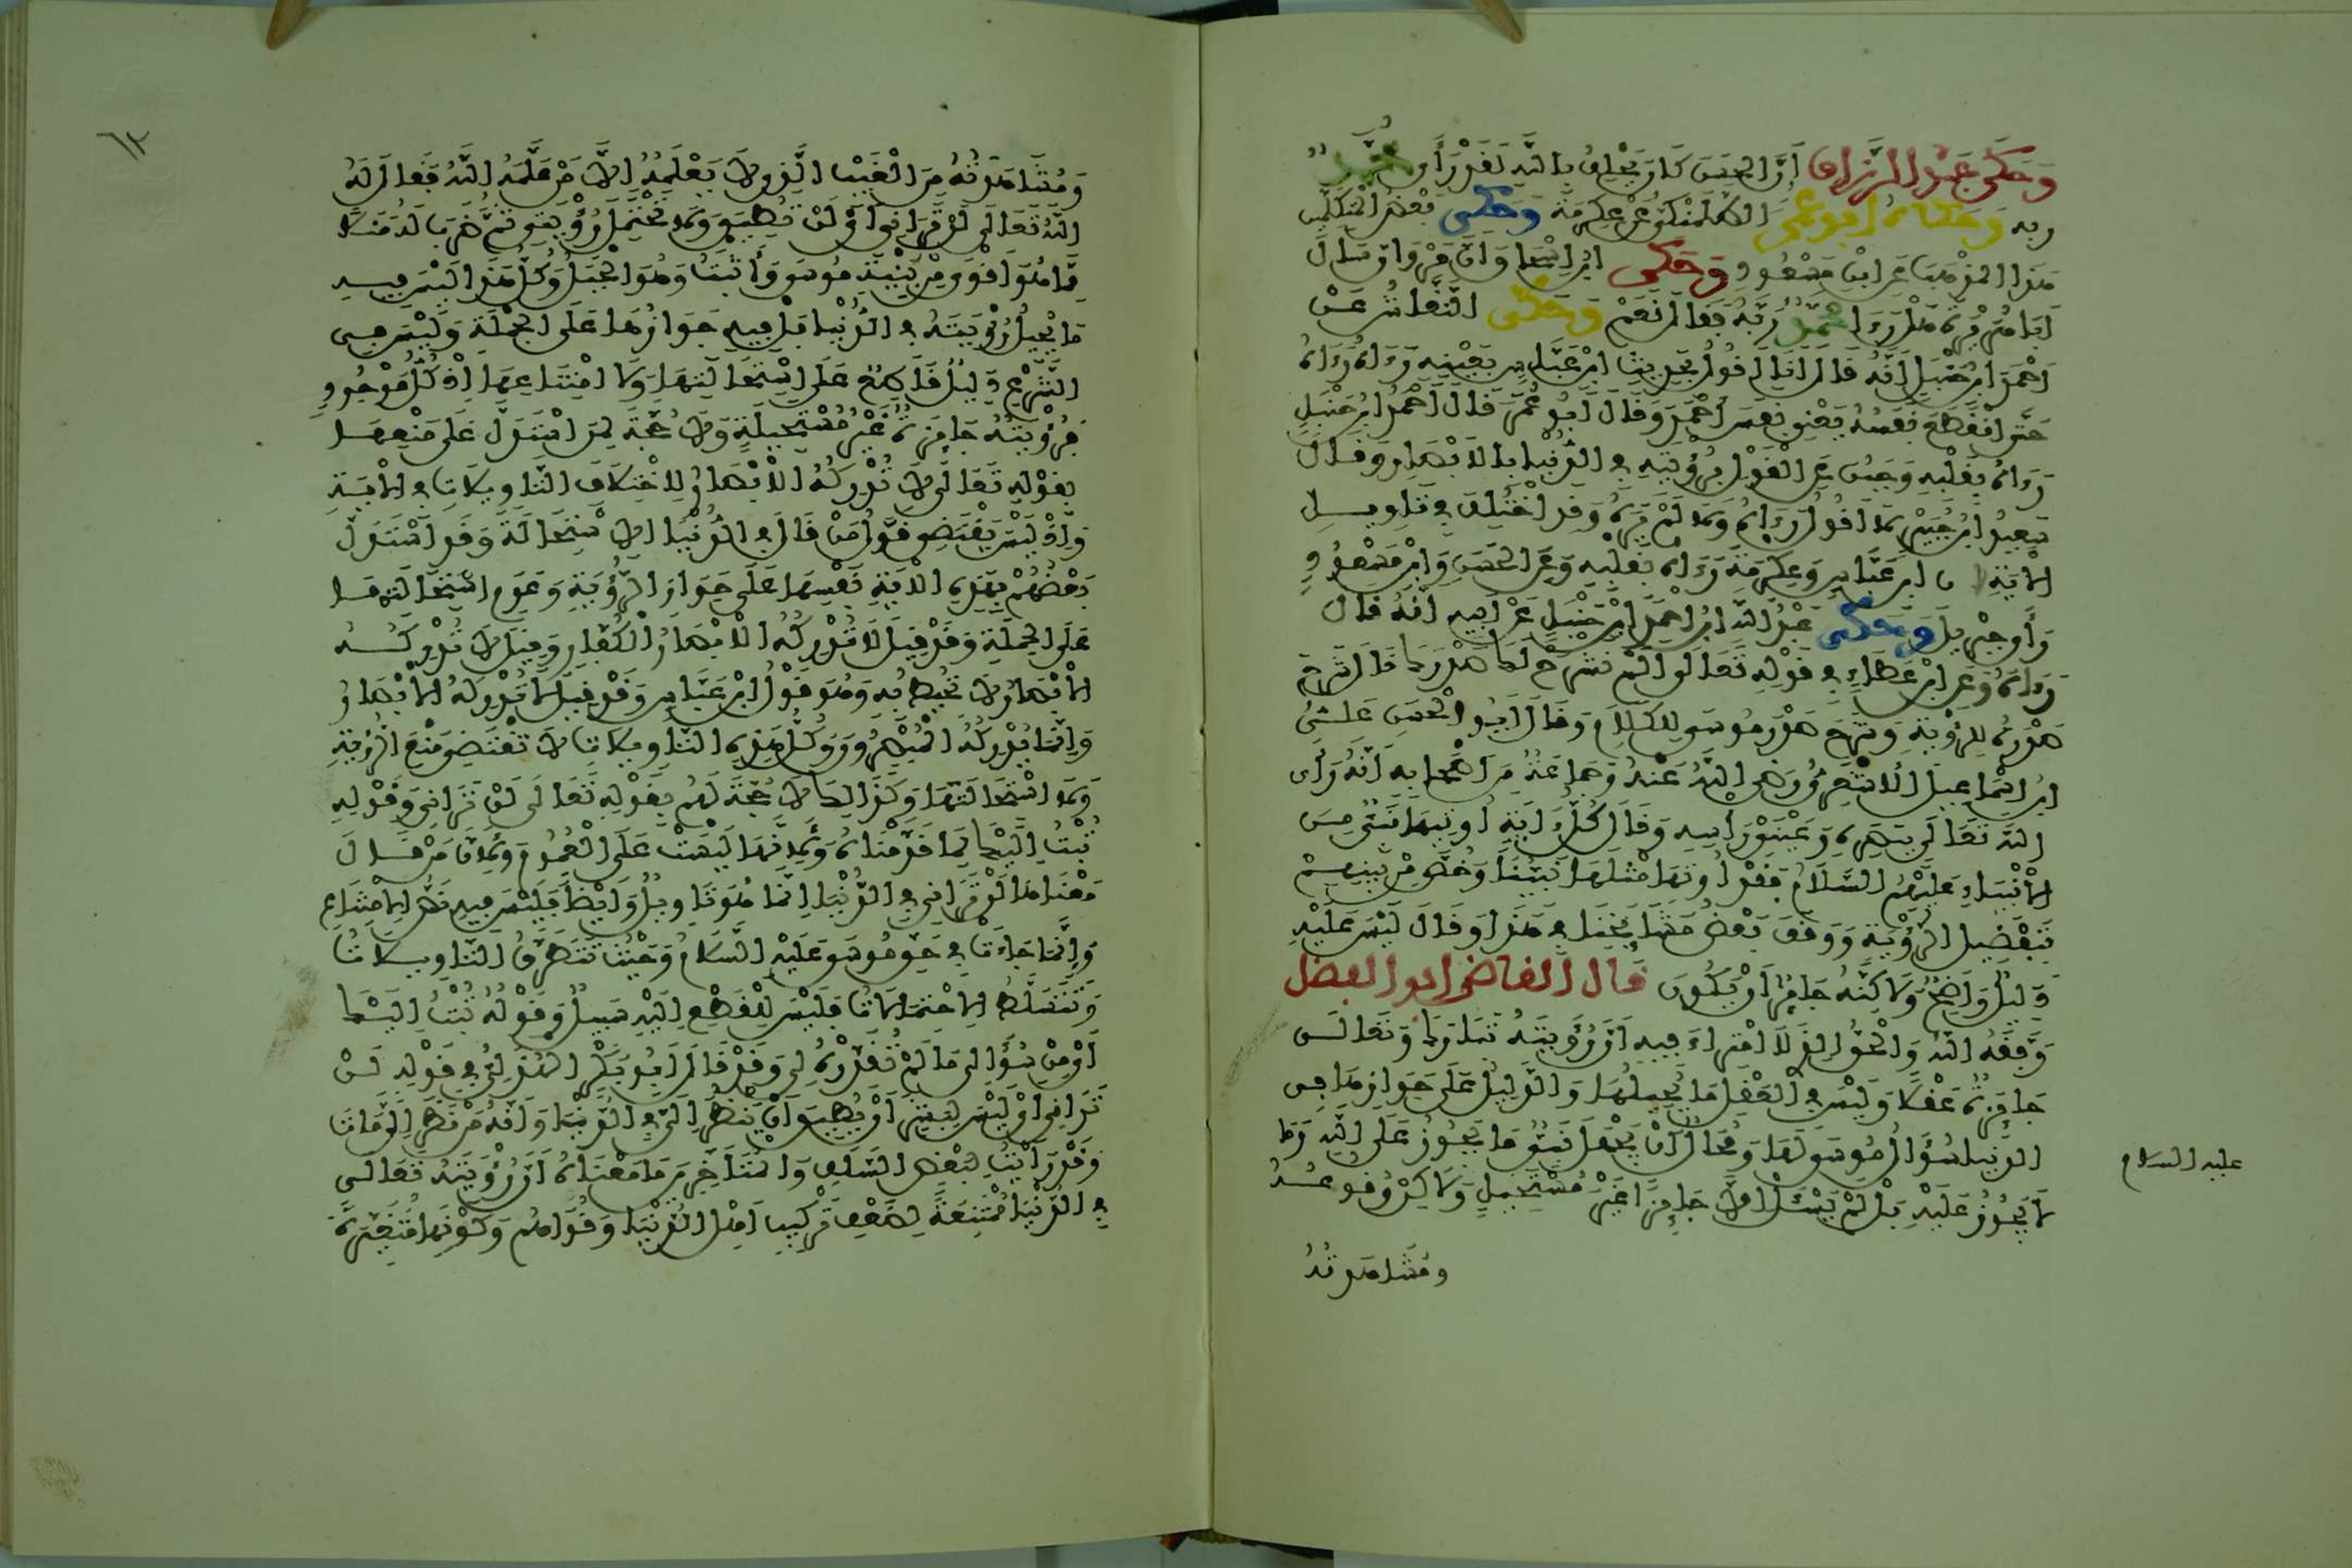 وَحَكَى عَبْدُ الرَّزَّاقِ أَنَّ الْحَسَنَ كَانَ يَحْلِفُ بِاللَّهِ لَقَدْ رَأَى مُحَمَّدٌ
رَبَّهُ وَحَكَاهُ أَبُو عُمَرَ الطَّلَمَنْكِيُّ عَنْ عِكْرِمَةَ وَحَكَى بَعْضُ الْمُتَكَلِّمِينَ
هَذَا الْمَذْهَبَ عَنِ ابْنِ مَسْعُودٍ وَحَكَى ابْنُ إِسْحَاقَ أَنَّ مَرْوَانَ سَأَلَ
أَبَا هُرَيْرَةَ هَلْ رَءَا مُحَمَّدٌ رَبَّهُ فَقَالَ نَعَمْ وَحَكَى النَّقَّاشُ عَنْ
أَحْمَدَ ابْنِ حَنْبَلٍ أَنَّهُ قَالَ أَنَا أَقُولُ بِحَدِيثِ ابْنِ عَبَّاسٍ بِعَيْنِهِ رَءَاهُ رَءَاهُ
حَتَّى انْقَطَعَ نَفَسُهُ يَعْنِي نَفَسَ أَحْمَدَ وَقَالَ أَبُو عُمَرَ قَالَ أَحْمَدُ ابْنُ حَنْبَلٍ
رَءَاهُ بِقَلْبِهِ وَجَبُنَ عَنِ الْقَوْلِ بِرُؤْيَتِهِ فِي الدُّنْيَا بِالْأَبْصَارِ وَقَالَ
سَعِيدُ ابْنُ جُبَيْرٍ لَا أَقُولُ رَءَاهُ وَلَا لَمْ يَرَهُ وَقَدِ اخْتُلِفَ فِي تَاوِيلِ
الْآيَةِ عَنِ ابْنِ عَبَّاسٍ وَعِكْرِمَةَ رَءَاهُ بِقَلْبِهِ وَعَنِ الْحَسَنِ وَابْنِ مَسْعُودٍ
رَأَى جِبْرِيلَ وَحَكَى عَبْدُ اللَّهِ ابْنُ أَحْمَدَ ابْنِ حَنْبَلٍ عَنْ أَبِيهِ أَنَّهُ قَالَ
رَءَاهُ وَعَنِ ابْنِ عَطَاءٍ فِي قَوْلِهِ تَعَالَى أَلَمْ نَشْرَحْ لَكَ صَدْرَكَ قَالَ شَرَحَ
صَدْرَهُ لِلرُّؤْيَةِ وَشَرَحَ صَدْرَ مُوسَى لِلْكَلَامِ وَقَالَ أَبُو الْحَسَنِ عَلِيُّ
ابْنُ إِسْمَاعِيلَ الْأَشْعَرِيُّ رَضِيَ اللَّهُ عَنْهُ وَجَمَاعَةٌ مِنْ أَصْحَابِهِ أَنَّهُ رَأَى
اللَّهَ تَعَالَى بِبَصَرِهِ وَعَيْنَيْ رَأْسِهِ وَقَالَ كُلُّ ءَايَةٍ أُوتِيَهَا نَبِيٌّ مِنَ
الْأَنْبِيَاءِ عَلَيْهِمُ السَّلَامُ فَقَدْ أُوتِيَ مِثْلَهَا نَبِيُّنَا وَخُصَّ مِنْ بَيْنِهِمْ
بِتَفْضِيلِ الرُّؤْيَةِ وَوَقَفَ بَعْضُ مَشَايِخِنَا فِي هَذَا وَقَالَ لَيْسَ عَلَيْهِ
دَلِيلٌ وَاضِحٌ وَلَاكِنَّهُ جَائِزٌ أَنْ يَكُونَ قَالَ الْقَاضِي أَبُو الْفَضْلِ
وَفَّقَهُ اللَّهُ وَالْحَقُّ الَّذِي لَا امْتِرَاءَ فِيهِ أَنَّ رُؤْيَتَهُ تَبَارَكَ وَتَعَالَى
جَائِزَةٌ عَقْلًا وَلَيْسَ فِي الْعَقْلِ مَا يُحِيلُهَا وَالدَّلِيلُ عَلَى جَوَازِهَا فِي
الدُّنْيَا سُؤَالُ مُوسَى لَهَا وَمُحَالٌ أَنْ يَجْهَلَ نَبِيٌّ مَا يَجُوزُ عَلَى اللَّهِ وَمَا
لَا يَجُوزُ عَلَيْهِ بَلْ لَمْ يَسْئَلْ إِلَّا جَائِزًا غَيْرَ مُسْتَحِيلٍ وَلَاكِنْ وُقُوعُهُ
وَمُشَاهَدَتُهُ
عليه السلام
١٢
وَمُشَاهَدَتُهُ مِنَ الْغَيْبِ الَّذِي لَا يَعْلَمُهُ إِلَّا مَنْ عَلَّمَهُ اللَّهُ فَقَالَ لَهُ
اللَّهُ تَعَالَى لَنْ تَرَانِي أَيْ لَنْ تُطِيقَ وَلَا تَحْتَمِلَ رُؤْيَتِي ثُمَّ ضَرَبَ لَهُ مَثَلًا
مِمَّا هُوَ أَقْوَى مِنْ بِنْيَةِ مُوسَى وَأَثْبَتُ وَهُوَ الْجَبَلُ وَكُلُّ هَذَا لَيْسَ فِيهِ
مَا يُحِيلُ رُؤْيَتَهُ فِي الدُّنْيَا بَلْ فِيهِ جَوَازُهَا عَلَى الْجُمْلَةِ وَلَيْسَ فِي
الشَّرْعِ دَلِيلٌ قَاطِعٌ عَلَى اسْتِحَالَتِهَا وَلَا امْتِنَاعِهَا إِذْ كُلُّ مَوْجُودٍ
فَرُؤْيَتُهُ جَائِزَةٌ غَيْرُ مُسْتَحِيلَةٍ وَلَا حُجَّةَ لِمَنِ اسْتَدَلَّ عَلَى مَنْعِهَا
بِقَوْلِهِ تَعَالَى لَا تُدْرِكُهُ الْأَبْصَارُ لِاخْتِلَافِ التَّاوِيلَاتِ فِي الْآيَةِ
وَإِذْ لَيْسَ يَقْتَضِي قَوْلُ مَنْ قَالَ فِي الدُّنْيَا الِاسْتِحَالَةَ وَقَدِ اسْتَدَلَّ
بَعْضُهُمْ بِهَذِهِ الْآيَةِ نَفْسِهَا عَلَى جَوَازِ الرُّؤْيَةِ وَعَدَمِ اسْتِحَالَتِهَا
عَلَى الْجُمْلَةِ وَقَدْ قِيلَ لَا تُدْرِكُهُ الْأَبْصَارُ الْكُفَّارِ وَقِيلَ لَا تُدْرِكُهُ
الْأَبْصَارُ لَا تُحِيطُ بِهِ وَهُوَ قَوْلُ ابْنِ عَبَّاسٍ وَقَدْ قِيلَ لَا تُدْرِكُهُ الْأَبْصَارُ
وَإِنَّمَا يُدْرِكُهُ الْمُبْصِرُونَ وَكُلُّ هَذِهِ التَّاوِيلَاتِ لَا تَقْتَضِي مَنْعَ الرُّؤْيَةِ
وَلَا اسْتِحَالَتَهَا وَكَذَلِكَ لَا حُجَّةَ لَهُمْ بِقَوْلِهِ تَعَالَى لَنْ تَرَانِي وَقَوْلِهِ
تُبْتُ إِلَيْكَ لِمَا قَدَّمْنَاهُ وَلِأَنَّهَا لَيْسَتْ عَلَى الْعُمُومِ وَلِأَنَّ مَنْ قَالَ
مَعْنَاهَا لَنْ تَرَانِي فِي الدُّنْيَا إِنَّمَا هُوَ تَاوِيلٌ وَأَيْضًا فَلَيْسَ فِيهِ نَصُّ الِامْتِنَاعِ
وَإِنَّمَا جَاءَتْ فِي حَقِّ مُوسَى عَلَيْهِ السَّلَامُ وَحَيْثُ تَتَطَرَّقُ التَّاوِيلَاتُ
وَتَتَسَلَّطُ الِاحْتِمَالَاتُ فَلَيْسَ لِلْقَطْعِ إِلَيْهِ سَبِيلٌ وَقَوْلُهُ تُبْتُ إِلَيْكَ
أَيْ مِنْ سُؤَالِي مَا لَمْ تُقَدِّرْهُ لِي وَقَدْ قَالَ أَبُو بَكْرٍ الْهُذَلِيُّ فِي قَوْلِهِ لَنْ
تَرَانِي أَيْ لَيْسَ لِبَشَرٍ أَنْ يُطِيقَ أَنْ يَنْظُرَ إِلَيَّ فِي الدُّنْيَا وَأَنَّهُ مَنْ نَظَرَ إِلَيَّ مَاتَ
وَقَدْ رَأَيْتُ لِبَعْضِ السَّلَفِ وَالْمُتَأَخِّرِينَ مَا مَعْنَاهُ أَنَّ رُؤْيَتَهُ تَعَالَى
فِي الدُّنْيَا مُمْتَنِعَةٌ لِضَعْفِ تَرْكِيبِ أَهْلِ الدُّنْيَا وَقُوَاهُمْ وَكَوْنِهَا مُتَغَيِّرَةً